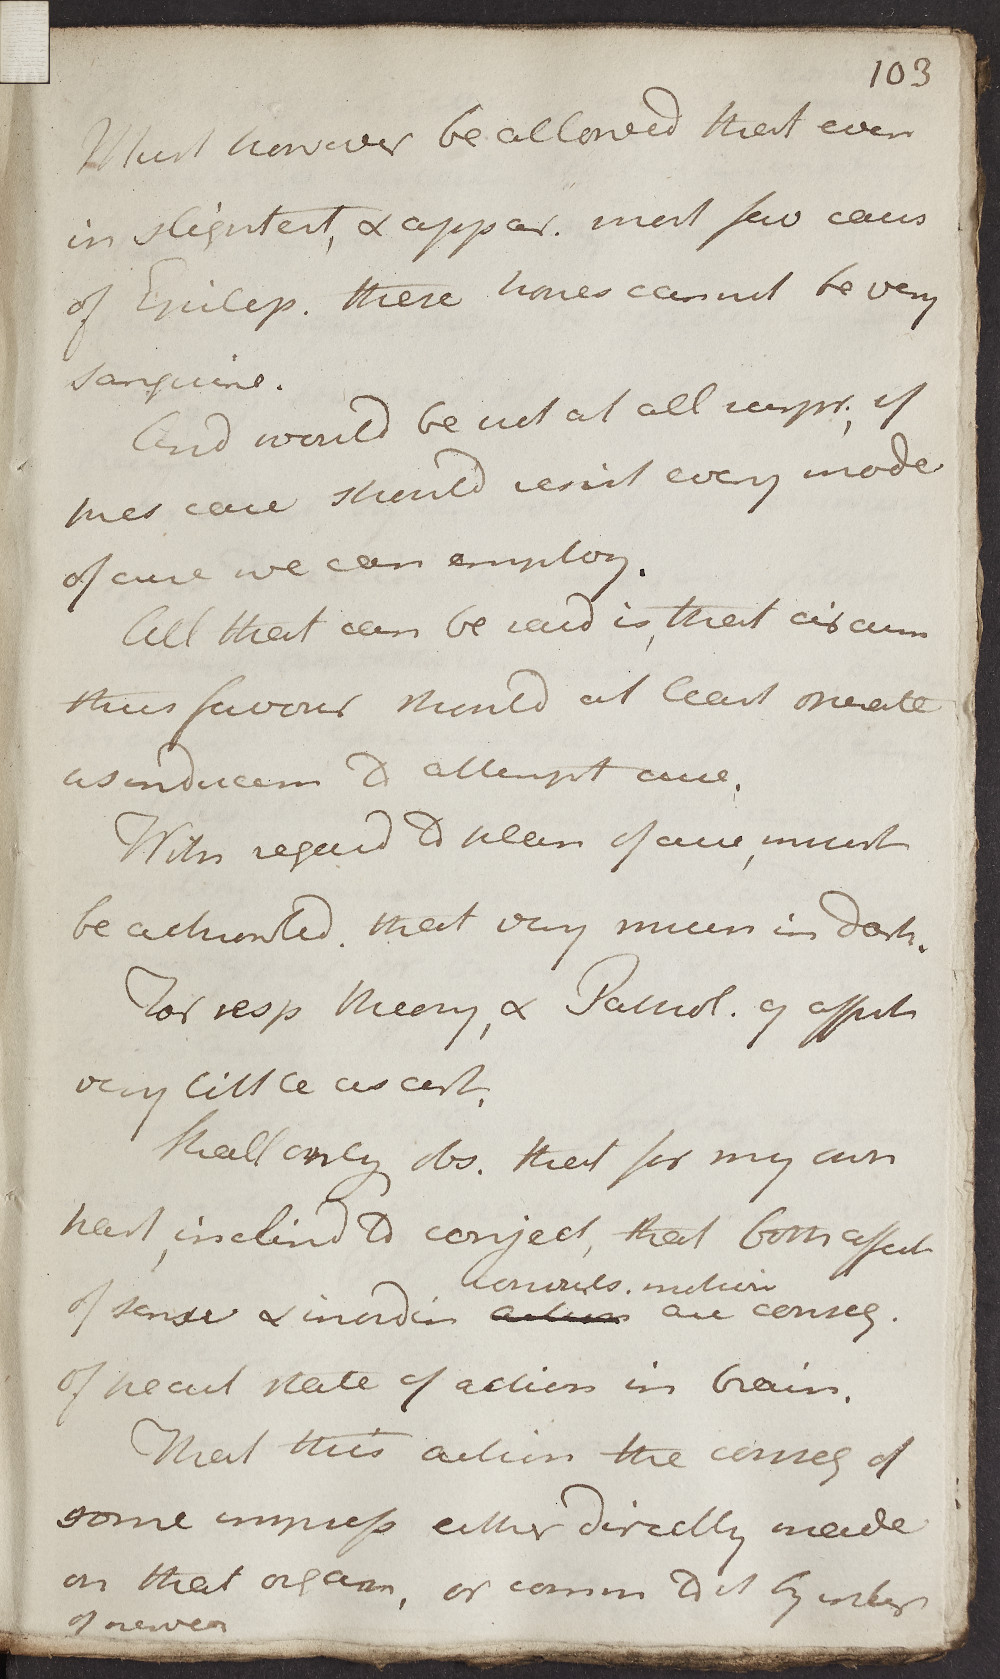 103
Must however be allowed that even
in slightest, & appar. most fav cases
of Epilep. these hopes cannot be very
sanguine.
And would be not at all surpr. if
this case should resist every mode
of cure we can employ.
All that can be said is, that circum
thus favour should at least operate
as inducem to attempt cure.
With regard to plan of cure, must
be acknowled. that very much in dark.
For resp theory, & Pathol. of affect
very little ascert.
Shall only obs. that for my own
part, inclind to conject, that both affect
convuls. motion
of sense & inordin action are conseq.
of pecul state of action in brain.
That this action the conseq of
some impress either directly made
on that organ, or comm to it by interv
of nerves